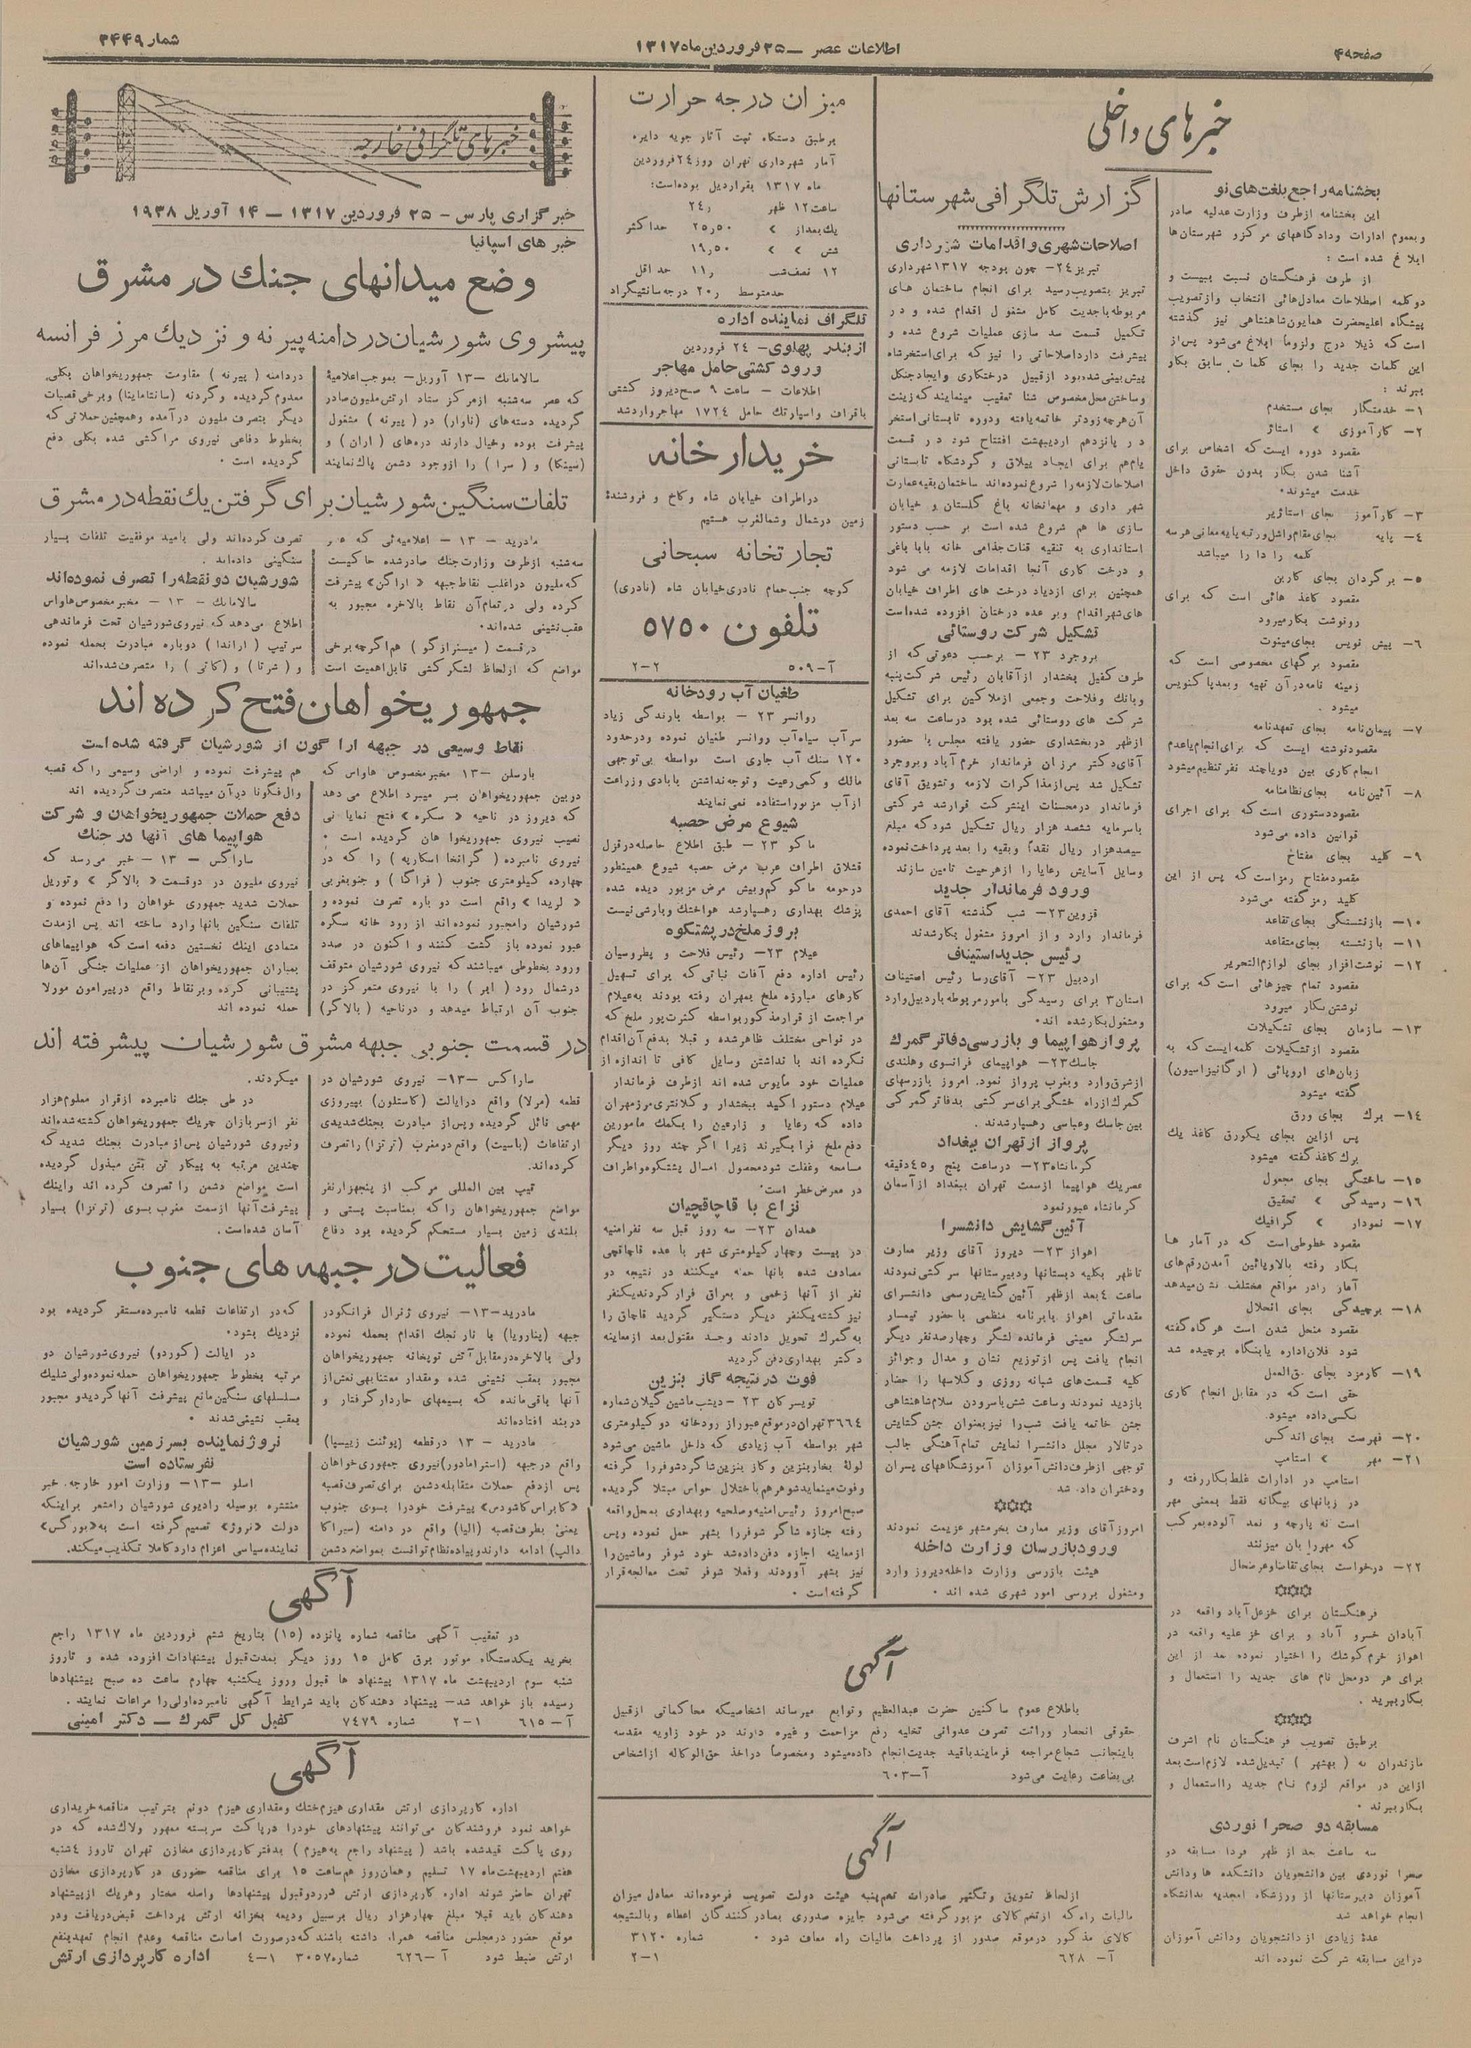 صفحه ۴
اطلاعات عصر — ۲۵ فروردین ماه ۱۳۱۷
شمار ۳۴۴۹
خبرهای داخلی
بخشنامه راجع بلغت‌های نو
این بخشنامه ازطرف وزارت عدلیه صادر
وبعموم ادارات ودادگاههای مرکز و شهرستان‌ها
ابلاغ شده است :
از طرف فرهنگستان نسبت ببیست و
دوکلمه اصطلاحات معادل‌هائی انتخاب وازتصویب
پیشگاه اعلیحضرت همایون‌شاهنشاهی نیز گذشته
است‌که ذیلا درج ولزوماً ابلاغ می‌شود پس‌از
این کلمات جدید را بجای کلمات سابق بکار
ببرند :
۱– خدمتگزار بجای مستخدم
۲– کارآموزی » استاژ
مقصود دوره ایست که اشخاص برای
آشنا شدن بکار بدون حقوق داخل
خدمت میشوند۰
۳– کارآموز بجای استاژیر
۴– پایه بجای‌مقام‌واشل‌ورتبه‌پایه‌معانی‌هرسه
کلمه را دارا میباشد
۵– برگردان بجای کاربن
مقصود کاغذ هائی است که برای
رونوشت بکارمیرود
۶– پیش نویس بجای‌مینوت
مقصود برگهای مخصوصی است که
زمینه نامه‌درآن تهیه وبعدپاکنویس
میشود .
۷– پیمان‌نامه بجای تعهدنامه
مقصودنوشته ایست که برای‌انجام‌یاعدم
انجام‌کاری بین دویاچند نفرتنظیم‌میشود
۸– آئین‌نامه بجای‌نظامنامه
مقصوددستوری است‌که برای اجرای
قوانین داده می‌شود
۹– کلید بجای مفتاح
مقصودمفتاح رمزاست‌که پس از این
کلید رمزگفته می‌شود
۱۰– بازنشستگی بجای‌تقاعد
۱۱– بازنشسته بجای‌متقاعد
۱۲– نوشت‌افزار بجای لوازم‌التحریر
مقصود تمام چیزهائی است‌که برای
نوشتن‌بکار میرود
۱۳– سازمان بجای تشکیلات
مقصود ازتشکیلات کلمه‌ایست‌که به
زبان‌های اروپائی (ارگانیزاسیون)
گفته میشود
۱۴– برك بجای ورق
پس ازاین بجای یکورق کاغذ یك
برك‌کاغذگفته میشود
۱۵– ساختگی بجای مجعول
۱۶– رسیدگی » تحقیق
۱۷– نمودار » گرافیك
مقصود خطوطی‌است که در آمار ها
بکار رفته بالاوپائین آمدن‌رقم‌های
آمار رادر مواقع مختلف نشان‌میدهد
۱۸– برچیدگی بجای انحلال
مقصود منحل شدن است هرگاه‌گفته
شود فلان‌اداره یابنگاه برچیده شد
۱۹– کارمزد بجای حق‌العمل
حقی است‌که در مقابل انجام کاری
بکسی‌داده میشود.
۲۰– فهرست بجای‌اندکس
۲۱– مهر » استامپ
استامپ در ادارات غلط‌بکاررفته و
در زبانهای بیگانه فقط بمعنی مهر
است نه پارچه و نمد آلوده‌بمرکب
که مهررا بآن میزنند
۲۲– درخواست بجای‌تقاضاوعرضحال
فرهنگستان برای خزعل‌آباد واقعه در
آبادان خسرو آباد و برای خزعلیه واقعه در
اهواز خرم‌کوشك را اختیار نموده بعد از این
برای هر دومحل نام های جدید را استعمال و
بکاربرید .
برطبق تصویب فرهنگستان نام اشرف
مازندران به ( بهشهر ) تبدیل‌شده لازم‌است‌بعد
ازاین در مواقع لزوم نام جدید رااستعمال و
بکارببرند ۰
مسابقه دو صحرا نوردی
سه ساعت بعد از ظهر فردا مسابقه دو
صحرا نوردی بین دانشجویان دانشکده ها ودانش
آموزان دبیرستانها از ورزشگاه امجدیه بدانشگاه
انجام خواهد شد
عدهٔ زیادی از دانشجویان ودانش آموزان
دراین مسابقه شرکت نموده اند
گزارش تلگرافی شهرستانها
اصلاحات شهری و اقدامات شهرداری
تبریز ۲۴– چون بودجه ۱۳۱۷شهرداری
تبریز بتصویب‌رسید برای انجام ساختمان های
مربوطه باجدیت کامل مشغول اقدام شده و در
تکمیل قسمت سد سازی عملیات شروع شده و
پیشرفت دارداصلاحاتی را نیز که برای‌استخرشاه
پیش‌بینی‌شده‌بود ازقبیل درختکاری وایجادجنگل
وساختن‌محل‌مخصوص شنا تعقیب مینمایندکه‌زینت
آن‌هرچه‌زودتر خاتمه‌یافته ودوره تابستانی‌استخر
در پانزدهم اردیبهشت افتتاح شود در قسمت
بام‌هم برای ایجاد ییلاق و گردشگاه تابستانی
اصلاحات لازمه‌را شروع‌نموده‌اند ساختمان‌بقیه‌عمارت
شهر داری و مهمانخانه باغ گلستان و خیابان
سازی ها هم شروع شده است بر حسب دستور
استانداری به تنقیه قنات‌جذامی خانه بابا باغی
و درخت کاری آنجا اقدامات لازمه می شود
همچنین برای ازدیاد درخت های اطراف خیابان
های‌شهراقدام وبر عده درختان افزوده شده‌است
تشکیل شرکت روستائی
بروجرد ۲۳ – برحسب دعوتی که از
طرف کفیل بخشدار ازآقایان رئیس شرکت‌پنبه
وبانك وفلاحت وجمعی ازملاکین برای تشکیل
شرکت های روستائی شده بود درساعت سه بعد
ازظهر دربخشداری حضور یافته مجلس با حضور
آقای‌دکتر مرزبان فرماندار خرم‌آباد وبروجرد
تشکیل شد پس‌ازمذاکرات لازمه وتشویق آقای
فرماندار درمحسنات اینشرکت قرارشد شرکتی
باسرمایه ششصد هزار ریال تشکیل شودکه مبلغ
سیصدهزار ریال نقداً وبقیه را بعد پرداخت‌نموده
وسایل آسایش رعایا را ازهرحیث تامین سازند
ورود فرماندار جدید
قزوین۲۳– شب گذشته آقای احمدی
فرماندار وارد و از امروز مشغول بکارشدند
رئیس جدید استیناف
اردبیل ۲۳– آقای‌رسا رئیس استیناف
استان۳ برای رسیدگی بامورمربوطه باردبیل‌وارد
ومشغول‌بکارشده اند۰
پرواز هواپیما و بازرسی دفاتر گمرك
جاسك۲۳– هواپیمای فرانسوی وهلندی
ازشرق‌وارد وبغرب پرواز نمود. امروز بازرسهای
گمرك‌ازراه خشگی‌برای‌سرکشی بدفاترگمرکی
بین‌جاسك وعباسی رهسپارشدند.
پرواز از تهران ببغداد
کرمانشاه۲۳– درساعت پنج و۴۵دقیقه
عصریك هواپیما ازسمت تهران ببغداد ازآسمان
کرمانشاه عبورنمود
آئین گشایش دانشسرا
اهواز ۲۳– دیروز آقای وزیر معارف
تاظهر بکلیه دبستانها ودبیرستانها سرکشی‌نمودند
ساعت ۴بعد ازظهر آئین گشایش‌رسمی دانشسرای
مقدماتی اهواز بابرنامه منظمی باحضور تیمسار
سرلشگر معینی فرمانده لشگر وچهارصدنفر دیگر
انجام یافت پس ازتوزیع نشان و مدال وجوائز
کلیه قسمت‌های شبانه روزی و کلاسها را حضار
بازدید نمودند وساعت شش‌باسرودن سلام‌شاهنشاهی
جشن خاتمه یافت شب‌را نیزبعنوان جشن‌گشایش
درتالار مجلل دانشسرا نمایش تمام‌آهنگی جالب
توجهی ازطرف‌دانش‌آموزان آموزشگاههای پسران
ودختران داده شد
امروزآقای وزیر معارف بخرمشهر عزیمت نمودند
ورود بازرسان وزارت داخله
هیئت بازرسی وزارت داخله‌دیروز وارد
ومشغول بررسی امور شهری شده اند ۰
میزان درجه حرارت
برطبق دستگاه ثبت آثار جویه دایره
آمار شهرداری تهران روز۲۴فروردین
ماه ۱۳۱۷ بقراردیل بوده‌است:
ساعت۱۲ ظهر ۲۴٫
یك‌بعداز » ۲۵٫۵۰ حداکثر
شش » » ۱۹٫۵۰
۱۲ نصف‌شب ۱۱٫ حداقل
حدمتوسط ۲۰٫ درجه‌سانتیگراد
تلگراف نماینده اداره
از بندر پهلوی– ۲۴ فروردین
ورود کشتی حامل مهاجر
اطلاعات – ساعت ۹ صبح‌دیروز کشتی
باقراف واسپارتك حامل ۱۷۲۴ مهاجرواردشد
خریدار خانه
دراطراف خیابان شاه وکاخ و فروشندهٔ
زمین درشمال وشمالغرب هستیم
تجارتخانه سبحانی
کوچه جنب‌حمام نادری‌خیابان شاه (نادری)
تلفون ۵۷۵۰
آ–۵۰۹ ۲–۲
طغیان آب رودخانه
روانسر ۲۳ – بواسطه بارندگی زیاد
سرآب سیاه‌آب روانسر طغیان نموده ودرحدود
۱۲۰ سنك آب جاری است بواسطه بی‌توجهی
مالك وکمی‌رعیت وتوجه‌نداشتن بآبادی‌وزراعت
ازآب مزبوراستفاده نمی‌نمایند
شیوع مرض حصبه
ماکو ۲۳– طبق اطلاع حاصله‌درقزل
قشلاق اطراف عرب مرض حصبه شیوع همینطور
درحومه ماکو کم‌وبیش مرض مزبور دیده شده
پزشك بهداری رهسپارشد هواخنك‌وبارشی‌نیست
بروز ملخ در پشتکوه
عیلام ۲۳– رئیس فلاحت و پطروسیان
رئیس اداره دفع آفات نباتی که برای تسهیل
کارهای مبارزه ملخ بمهران رفته بودند به‌عیلام
مراجعت از قرارمذکوربواسطه کثرت‌پور ملخ‌که
در نواحی مختلف ظاهرشده و قبلا بدفع‌آن‌اقدام
نکرده اند با نداشتن وسایل کافی تا اندازه از
عملیات خود مایوس شده اند ازطرف فرماندار
عیلام دستور اکید ببخشدار وکلانتری‌مرزمهران
داده که رعایا و زارعین را بکمك مامورین
دفع‌ملخ فرابگیرند زیرا اگر چند روز دیگر
مسامحه وغفلت شودمحصول امسال پشتکوه‌واطراف
در معرض‌خطر است۰
نزاع با قاچاقچیان
همدان ۲۳– سه روز قبل سه نفرامنیه
در بیست وچهارکیلومتری شهر با عده قاچاقچی
مصادف شده بانها حمله میکنند در نتیجه دو
نفر از آنها زخمی و بعراق فرارکردندیکنفر
نیزکشته‌یکنفر دیگر دستگیر گردید قاچاق را
به‌گمرك تحویل دادند وجسد مقتول‌بعد ازمعاینه
دکتر بهداری‌دفن‌گردید
فوت در نتیجه گاز بنزین
تویسرکان ۲۳– دیشب ماشین گیلان‌شماره
۳۶۶۴تهران‌درموقع‌عبوراز رودخانه دوکیلومتری
شهر بواسطه آب زیادی که داخل ماشین می‌شود
لولهٔ بخاربنزین وگاز بنزین‌شاگردشوفررا گرفته
وفوت‌مینمایدشوفرهم‌باختلال حواس مبتلا گردیده
صبح‌امروز رئیس‌امنیه‌وصلحیه وبهداری بمحل‌واقعه
رفته جنازه شاگر شوفررا بشهر حمل نموده وپس
ازمعاینه اجازه دفن‌داده‌شد خود شوفر وماشین‌را
نیز بشهر آوردند وفعلا شوفر تحت معالجه‌قرار
گرفته‌است ۰
آگهی
باطلاع عموم ساکنین حضرت عبدالعظیم وتوابع میرساند اشخاصیکه محاکماتی ازقبیل
حقوقی انحصار وراثت تصرف عدوانی تخلیه رفع مزاحمت و غیره دارند در خود زاویه مقدسه
باینجانب شجاع‌مراجعه فرمایندباقید جدیت‌انجام داده‌میشود ومخصوصاً دراخذ حق‌الوکاله ازاشخاص
بی‌بضاعت رعایت می‌شود آ–۶۰۳
آگهی
ازلحاظ تشویق وتکثیر صادرات تخم‌پنبه هیئت دولت تصویب فرموده‌اند معادل‌میزان
مالیات راه‌که ازتخم‌کالای مزبورگرفته می‌شود جایزه صدوری بصادرکنندگان اعطاء وبالنتیجه
کالای مذکور درموقع صدور از پرداخت مالیات راه معاف شود ۰ شماره ۳۱۲۰
آ– ۶۲۸ ۲–۱
خبرهای تلگرافی خارجه
خبرگزاری پارس – ۲۵ فروردین ۱۳۱۷ — ۱۴ آوریل ۱۹۳۸
خبر های اسپانیا
وضع میدانهای جنك در مشرق
پیشروی شورشیان در دامنه پیرنه و نزدیك مرز فرانسه
سالامانك –۱۳ آوریل– بموجب‌اعلامیهٔ
که عصر سه‌شنبه ازمرکز ستاد ارتش‌ملیون‌صادر
گردیده دسته‌های (ناوار) در (پیرنه) مشغول
پیشرفت بوده وخیال دارند دره‌های (اران) و
(سینکا) و (سرا) را ازوجود دشمن پاك‌نمایند
دردامنه (پیرنه) مقاومت جمهوریخواهان بکلی
معدوم‌گردیده وگردنه (سانتاماینا) وبرخی‌قصبات
دیگر بتصرف‌ملیون درآمده وهمچنین‌حملاتی‌که
بخطوط دفاعی نیروی مراکشی شده بکلی دفع
گردیده است ۰
تلفات سنگین شورشیان برای گرفتن یك نقطه در مشرق
مادرید – ۱۳ – اعلامیه‌ئی که عصر
سه‌شنبه ازطرف وزارت‌جنك صادرشده حاکیست
که‌ملیون دراغلب نقاط‌جبهه «اراگن» پیشرفت
کرده ولی درتمام‌آن نقاط بالاخره مجبور به
عقب‌نشینی شده‌اند۰
درقسمت (میسنرازگو) هم‌اگرچه‌برخی
مواضع که ازلحاظ لشکرکشی قابل‌اهمیت است
تصرف کرده‌اند ولی باامید موفقیت تلفات بسیار
سنگینی داده‌اند.
شورشیان دو نقطه را تصرف نموده‌اند
سالامانك – ۱۳ – مخبرمخصوص‌هاواس
اطلاع می‌دهدکه نیروی‌شورشیان تحت فرماندهی
سرتیپ (اراندا) دوباره مبادرت بحمله نموده
و (شرتا) و (کاتی) را متصرف‌شده‌اند
جمهوریخواهان فتح کرده اند
نقاط وسیعی در جبهه اراگون از شورشیان گرفته شده است
بارسلن –۱۳ مخبرمخصوص هاواس که
دربین جمهوریخواهان بسر میبرد اطلاع می‌دهد
که دیروز در ناحیه «سگره» فتح نمایانی
نصیب نیروی جمهوریخوا هان گردیده است ۰
نیروی نامبرده (گرانخا اسکارپه) را که در
چهارده کیلومتری جنوب (فراگا) و جنوبغربی
«لریدا» واقع است دو باره تصرف نموده و
شورشیان رامجبور نموده‌اند از رود خانه سگره
عبور نموده باز گشت کنند و اکنون در صدد
ورود بخطوطی میباشندکه نیروی شورشیان متوقف
درشمال رود (ابر) را با نیروی متمرکز در
جنوب آن ارتباط میدهد و درناحیه (بالاگر)
هم پیشرفت نموده و اراضی وسیعی راکه قصبه
وال‌فگونا درآن میباشد متصرف‌گردیده اند
دفع حملات جمهوریخواهان و شرکت
هواپیما های آنها در جنك
ساراگس – ۱۳ – خبر می‌رسد که
نیروی ملیون در دوقسمت «بالاگر» وتوریل
حملات شدید جمهوری خواهان را دفع نموده و
تلفات سنگین بانها وارد ساخته اند پس ازمدت
متمادی اینك نخستین دفعه است‌که هواپیماهای
بمباران جمهوریخواهان از عملیات جنگی آن‌ها
پشتیبانی کرده وبرنقاط واقع درپیرامون مورلا
حمله نموده اند
در قسمت جنوبی جبهه مشرق شورشیان پیشرفته اند
ساراگس –۱۳– نیروی شورشیان در
قطعه (مرلا) واقع درایالت (کاستلون) بپیروزی
مهمی نائل گردیده وپس‌از مبادرت بجنك‌شدیدی
ارتفاعات (باسیت) واقع‌درمغرب (ترتزا)راتصرف
کرده‌اند.
تیپ بین المللی مرکب از پنجهزارنفر
مواضع جمهوریخواهان راکه بمناسبت پستی و
بلندی زمین بسیار مستحکم گردیده بود دفاع
میکردند.
در طی جنك نامبرده ازقرار معلوم‌هزار
نفر ازسربازان چریك جمهوریخواهان کشته‌شده‌اند
ونیروی شورشیان پس‌از مبادرت بجنك شدیدکه
چندین مرتبه به پیکار تن بتن مبذول گردیده
است مواضع دشمن را تصرف کرده اند واینك
پیشرفت‌آنها ازسمت مغرب بسوی (ترتزا) بسیار
آسان شده‌است.
فعالیت در جبهه های جنوب
مادرید–۱۳– نیروی ژنرال فرانکودر
جبهه (پناروپا) با نارنجك اقدام بحمله نموده
ولی بالاخره‌درمقابل‌آتش توپخانه جمهوریخواهان
مجبور بعقب نشینی شده ومقدار معتنابهی‌نعش‌از
آنها باقی‌مانده که بسیمهای خاردارگرفتار و
دربند افتاده‌اند
مادرید – ۱۳ درقطعه (پوئنت زبیسپا)
واقع درجبهه (استرامادور)نیروی جمهوری‌خواهان
پس ازدفع حملات متقابله‌دشمن برای‌تصرف‌قصبه
«کابراس‌کاشودس» پیشرفت خودرا بسوی جنوب
یعنی بطرف‌قصبه (الیا) واقع در دامنه (سیراکا
دالپ) ادامه دارندوپیاده‌نظام‌توانست بمواضع‌دشمن
که‌در ارتفاعات قطعه نامبرده‌مستقر گردیده بود
نزدیك بشود۰
در ایالت (کوردو) نیروی‌شورشیان دو
مرتبه بخطوط جمهوریخواهان حمله‌نموده‌ولی‌شلیك
مسلسلهای سنگین‌مانع پیشرفت آنهاگردیدو مجبور
بعقب نشینی‌شدند۰
نروژ نماینده بسرزمین شورشیان
نفرستاده است
اسلو –۱۳– وزارت امور خارجه، خبر
منتشره بوسیله رادیوی شورشیان رامشعر براینکه
دولت «نروژ» تصمیم‌گرفته است به«بورگس»
نماینده‌سیاسی اعزام داردکاملا تکذیب‌میکند.
آگهی
در تعقیب آگهی مناقصه شماره پانزده (۱۵) بتاریخ ششم فروردین ماه ۱۳۱۷ راجع
بخرید یکدستگاه موتور برق کامل ۱۵ روز دیگر بمدت‌قبول پیشنهادات افزوده شده و تاروز
شنبه سوم اردیبهشت ماه ۱۳۱۷ پیشنهاد ها قبول وروز یکشنبه چهارم ساعت ده صبح پیشنهادها
رسیده باز خواهد شد– پیشنهاد دهندگان باید شرایط آگهی نامبرده‌اولی‌را مراعات نمایند .
آ– ۶۱۵ ۲–۱ شماره ۷۴۷۹ کفیل کل گمرك — دکتر امینی
آگهی
اداره کارپردازی ارتش مقداری هیزم‌خنك ومقداری هیزم دونم بترتیب مناقصه‌خریداری
خواهد نمود فروشندگان می‌توانند پیشنهادهای خودرا درپاکت سربسته ممهور ولاك‌شده که در
روی پاکت قیدشده باشد (پیشنهاد راجع به‌هیزم) بدفترکارپردازی مخازن تهران تاروز ۴شنبه
هفتم اردیبهشت‌ماه ۱۷ تسلیم وهمان‌روز هم‌ساعت ۱۵ برای مناقصه حضوری در کارپردازی مخازن
تهران حاضر شوند اداره کارپردازی ارتش دررد‌وقبول پیشنهادها واصله مختار وهریك ازپیشنهاد
دهندگان باید قبلا مبلغ چهارهزار ریال برسبیل ودیعه بخزانه ارتش پرداخت قبض‌دریافت ودر
موقع حضور درمجلس مناقصه همراه داشته باشندکه‌درصورت اصابت مناقصه وعدم انجام تعهدبنفع
ارتش ضبط شود آ–۶۲۶ شماره۳۰۵۷ ۴–۱ اداره کارپردازی ارتش